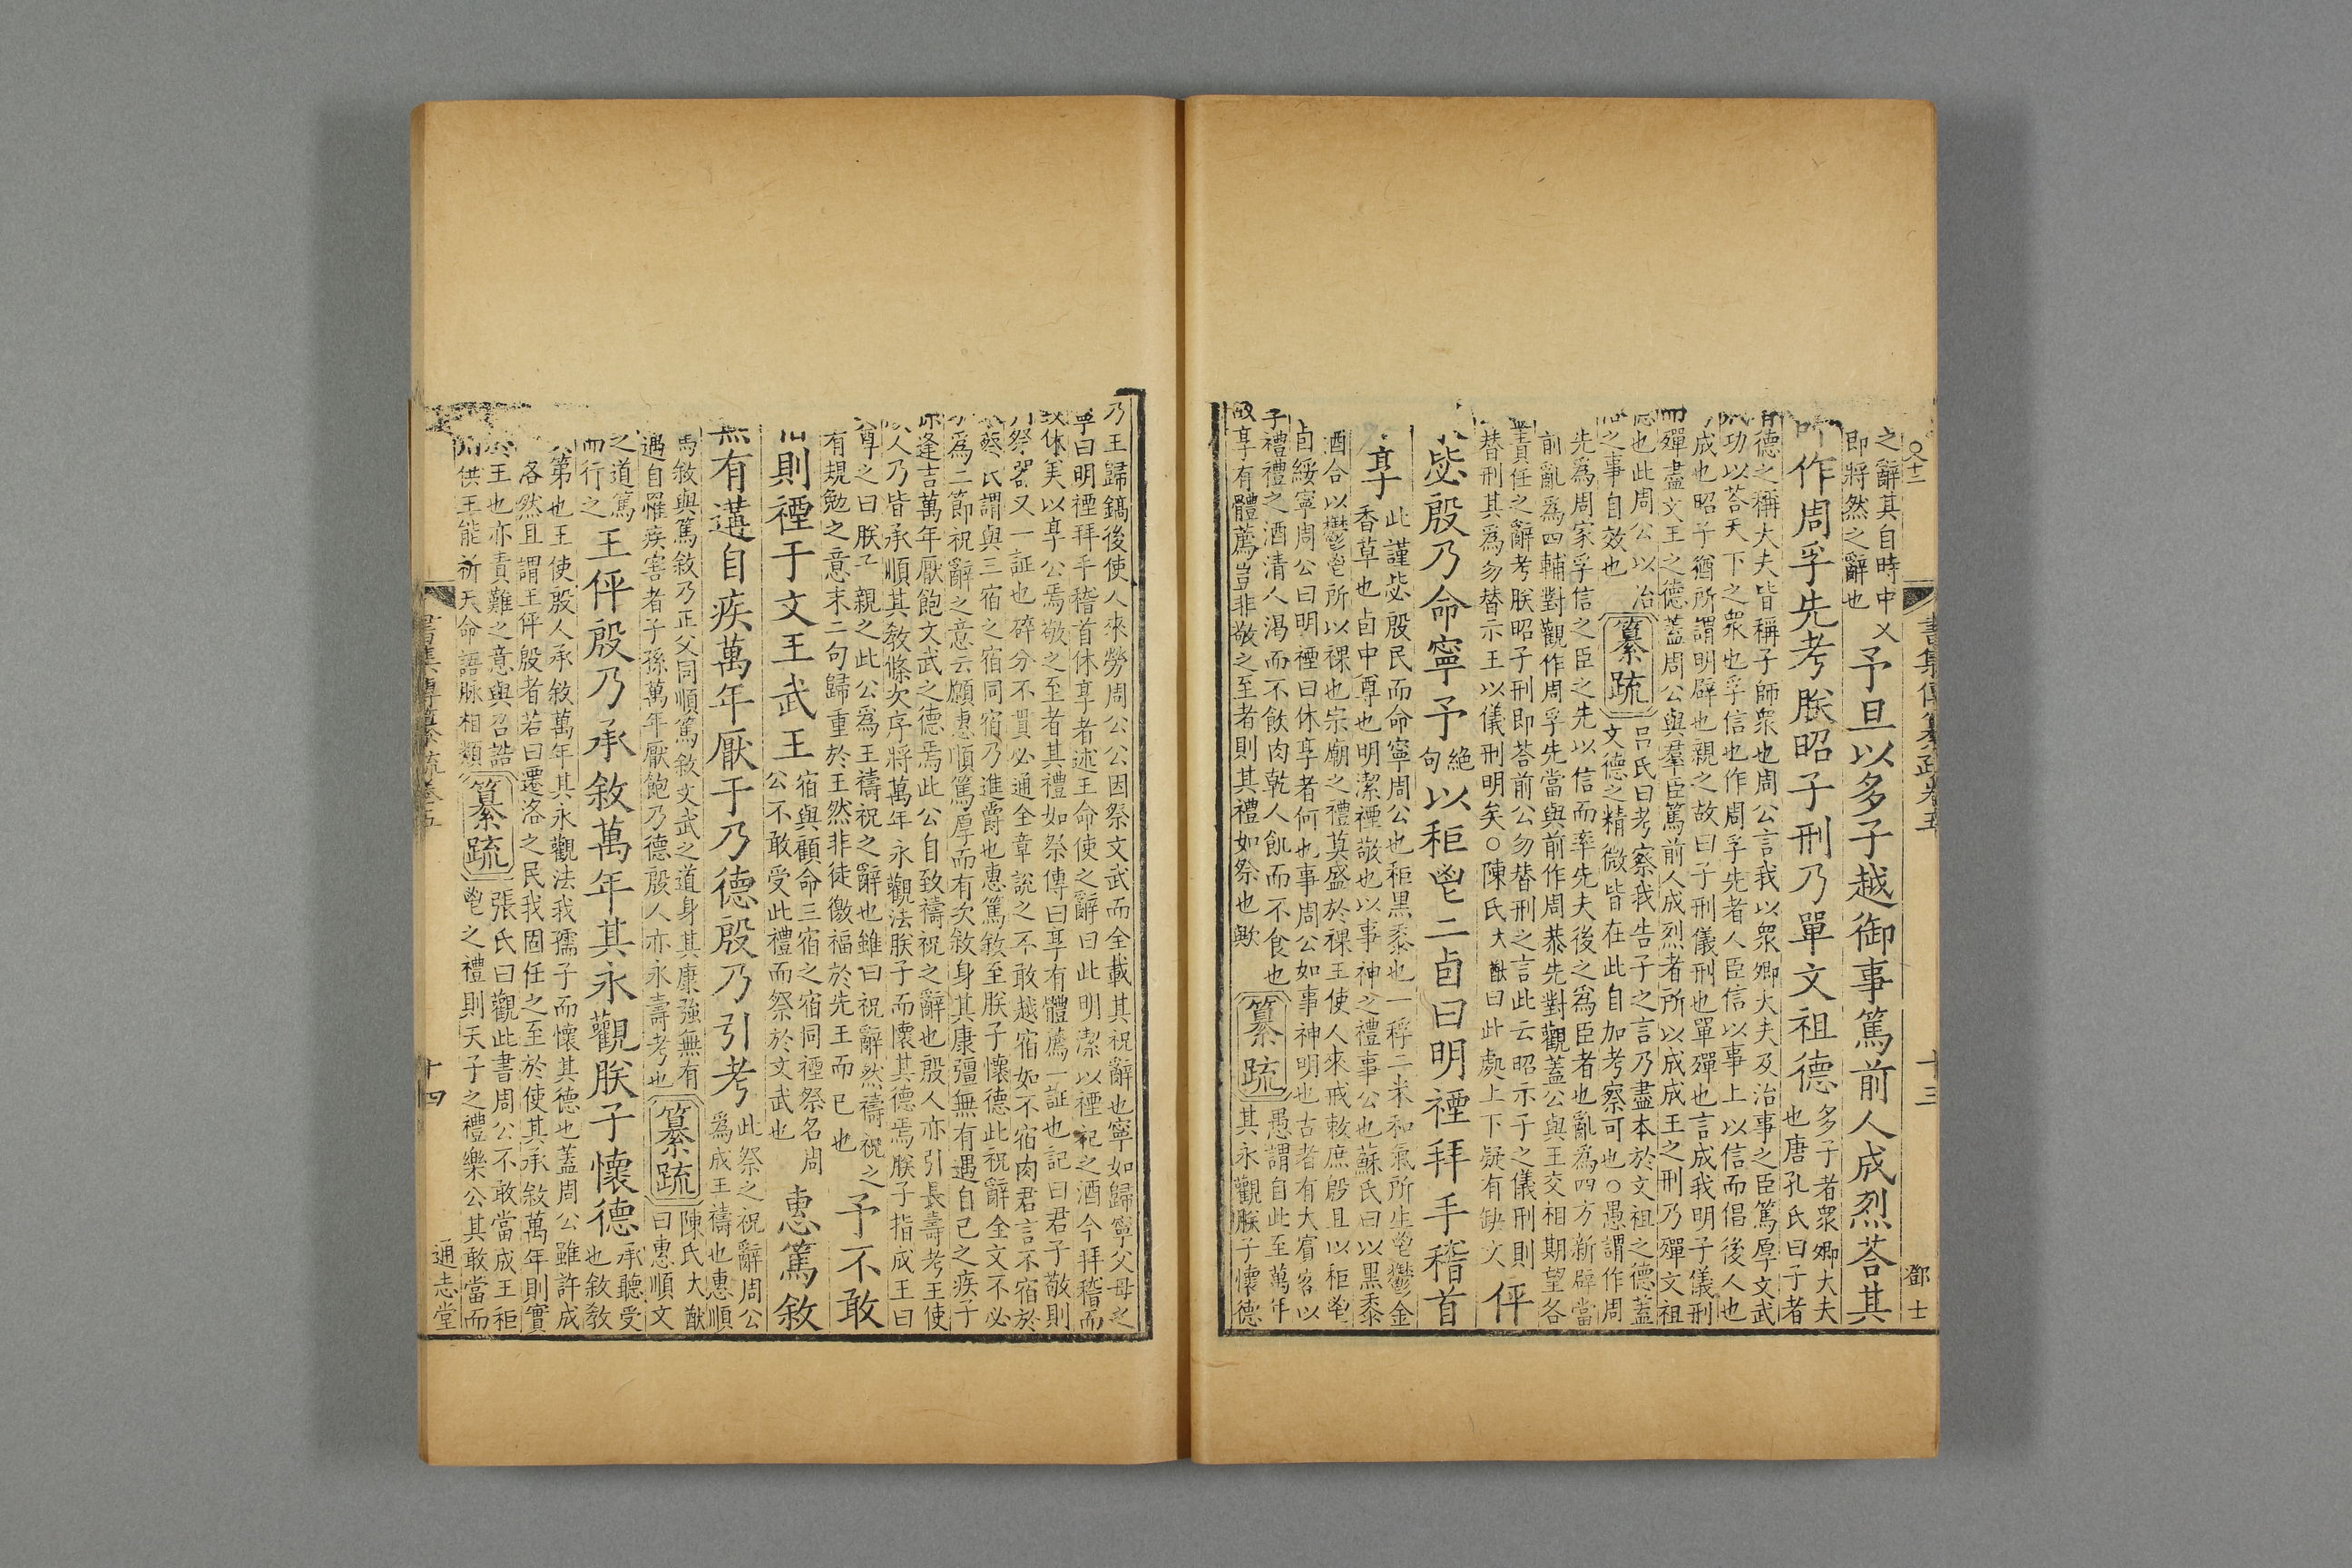 書集傳纂疏卷五
十三
鄧士
之辭其自時中乂予旦以多子越御事篤前人成烈荅其
即將然之辭也
作周孚先考朕昭子刑乃單文祖德多子者衆卿大夫
也唐孔氏曰子者
德之稱大夫皆稱子師衆也周公言我以衆卿大夫及治事之臣篤厚文武
功以荅天下之衆也孚信也作周孚先者人臣信以事上以信而倡後人也
成也昭子猶所謂明辟也親之故曰子刑儀刑也單殫也言成我明子儀刑
而殫盡文王之德蓋周公與羣臣篤前人成烈者所以成成王之刑乃殫文祖
也此周公以治纂疏呂氏曰考察我告子之言乃盡本於文祖之德蓋
之事自效也文德之精微皆在此自加考察可也○愚謂作周
先爲周家孚信之臣之先以信而率先夫後之爲臣者也亂爲四方新辟當
前亂爲四輔對觀作周孚先當與前作周恭先對觀蓋公與王交相期望各
責任之辭考朕昭子刑即荅前公勿替刑之言此云昭示于之儀刑則
替刑其爲勿替示王以儀刑明矣○陳氏大猷曰此處上下疑有缺文伻
毖殷乃命寧予絕句以秬鬯二卣曰明禋拜手稽首
享此謹毖殷民而命寧周公也秬黑黍也一稃二米和氣所生鬯鬱金
香草也卣中尊也明潔禋敬也以事神之禮事公也蘇氏曰以黑黍
酒合以鬱鬯所以祼也宗廟之禮莫盛於祼王使人來戒敕庶殷且以秬鬯
卣綏寧周公曰明禋曰休享者何也事周公如事神明也古者有大賓客以
子禮禮之酒清人渴而不飲肉乾人飢而不食也纂疏愚謂自此至萬年
享有體薦豈非敬之至者則其禮如祭也歟其永觀朕子懷德
乃王歸鎬後使人來勞周公公因祭文武而全載其祝辭也寧如歸寧父母之
曰明禋拜手稽首休享者述王命使之辭曰此明潔以禋祀之酒今拜稽而
休美以享公焉敬之至者其禮如祭傳曰享有體薦一証也記曰君子敬則
祭又一証也碎分不貫必通全章說之不敢越宿如不宿肉君言不宿於
蔡氏謂與三宿之宿同宿乃進爵也惠篤敘至朕子懷德此祝辭全文不必
爲二節祝辭之意云願惠順篤厚而有次敘身其康彊無有遇自己之疾子
逢吉萬年厭飽文武之德焉此公自致禱祝之辭也殷人亦引長壽考王使
人乃皆承順其教條次序將萬年永觀法朕子而懷其德焉朕子指成王曰
尊之曰朕子親之此公爲王禱祝之辭也雖曰祝辭然禱祝之予不敢
有規勉之意末二句歸重於王然非徒徼福於先王而已也
則禋于文王武王宿與顧命三宿之宿同禋祭名周惠篤敘
公不敢受此禮而祭於文武也
無有遘自疾萬年厭于乃德殷乃引考此祭之祝辭周公
爲成王禱也惠順
篤敘與篤敘乃正父同順篤敘文武之道身其康強無有纂疏陳氏大猷
遇自罹疾害者子孫萬年厭飽乃德殷人亦永壽考也曰惠順文
之道篤王伻殷乃承敘萬年其永觀朕子懷德承聽受
而行之也敘敎
第也王使殷人承敘萬年其永觀法我孺子而懷其德也蓋周公雖許成
洛然且謂王伻殷者若曰遷洛之民我固任之至於使其承敘萬年則實
王也亦責難之意與召誥纂疏張氏曰觀此書周公不敢當成王秬
供王能祈天命語脉相類鬯之禮則天子之禮樂公其敢當而
書集傳纂疏卷五
十四
通志堂